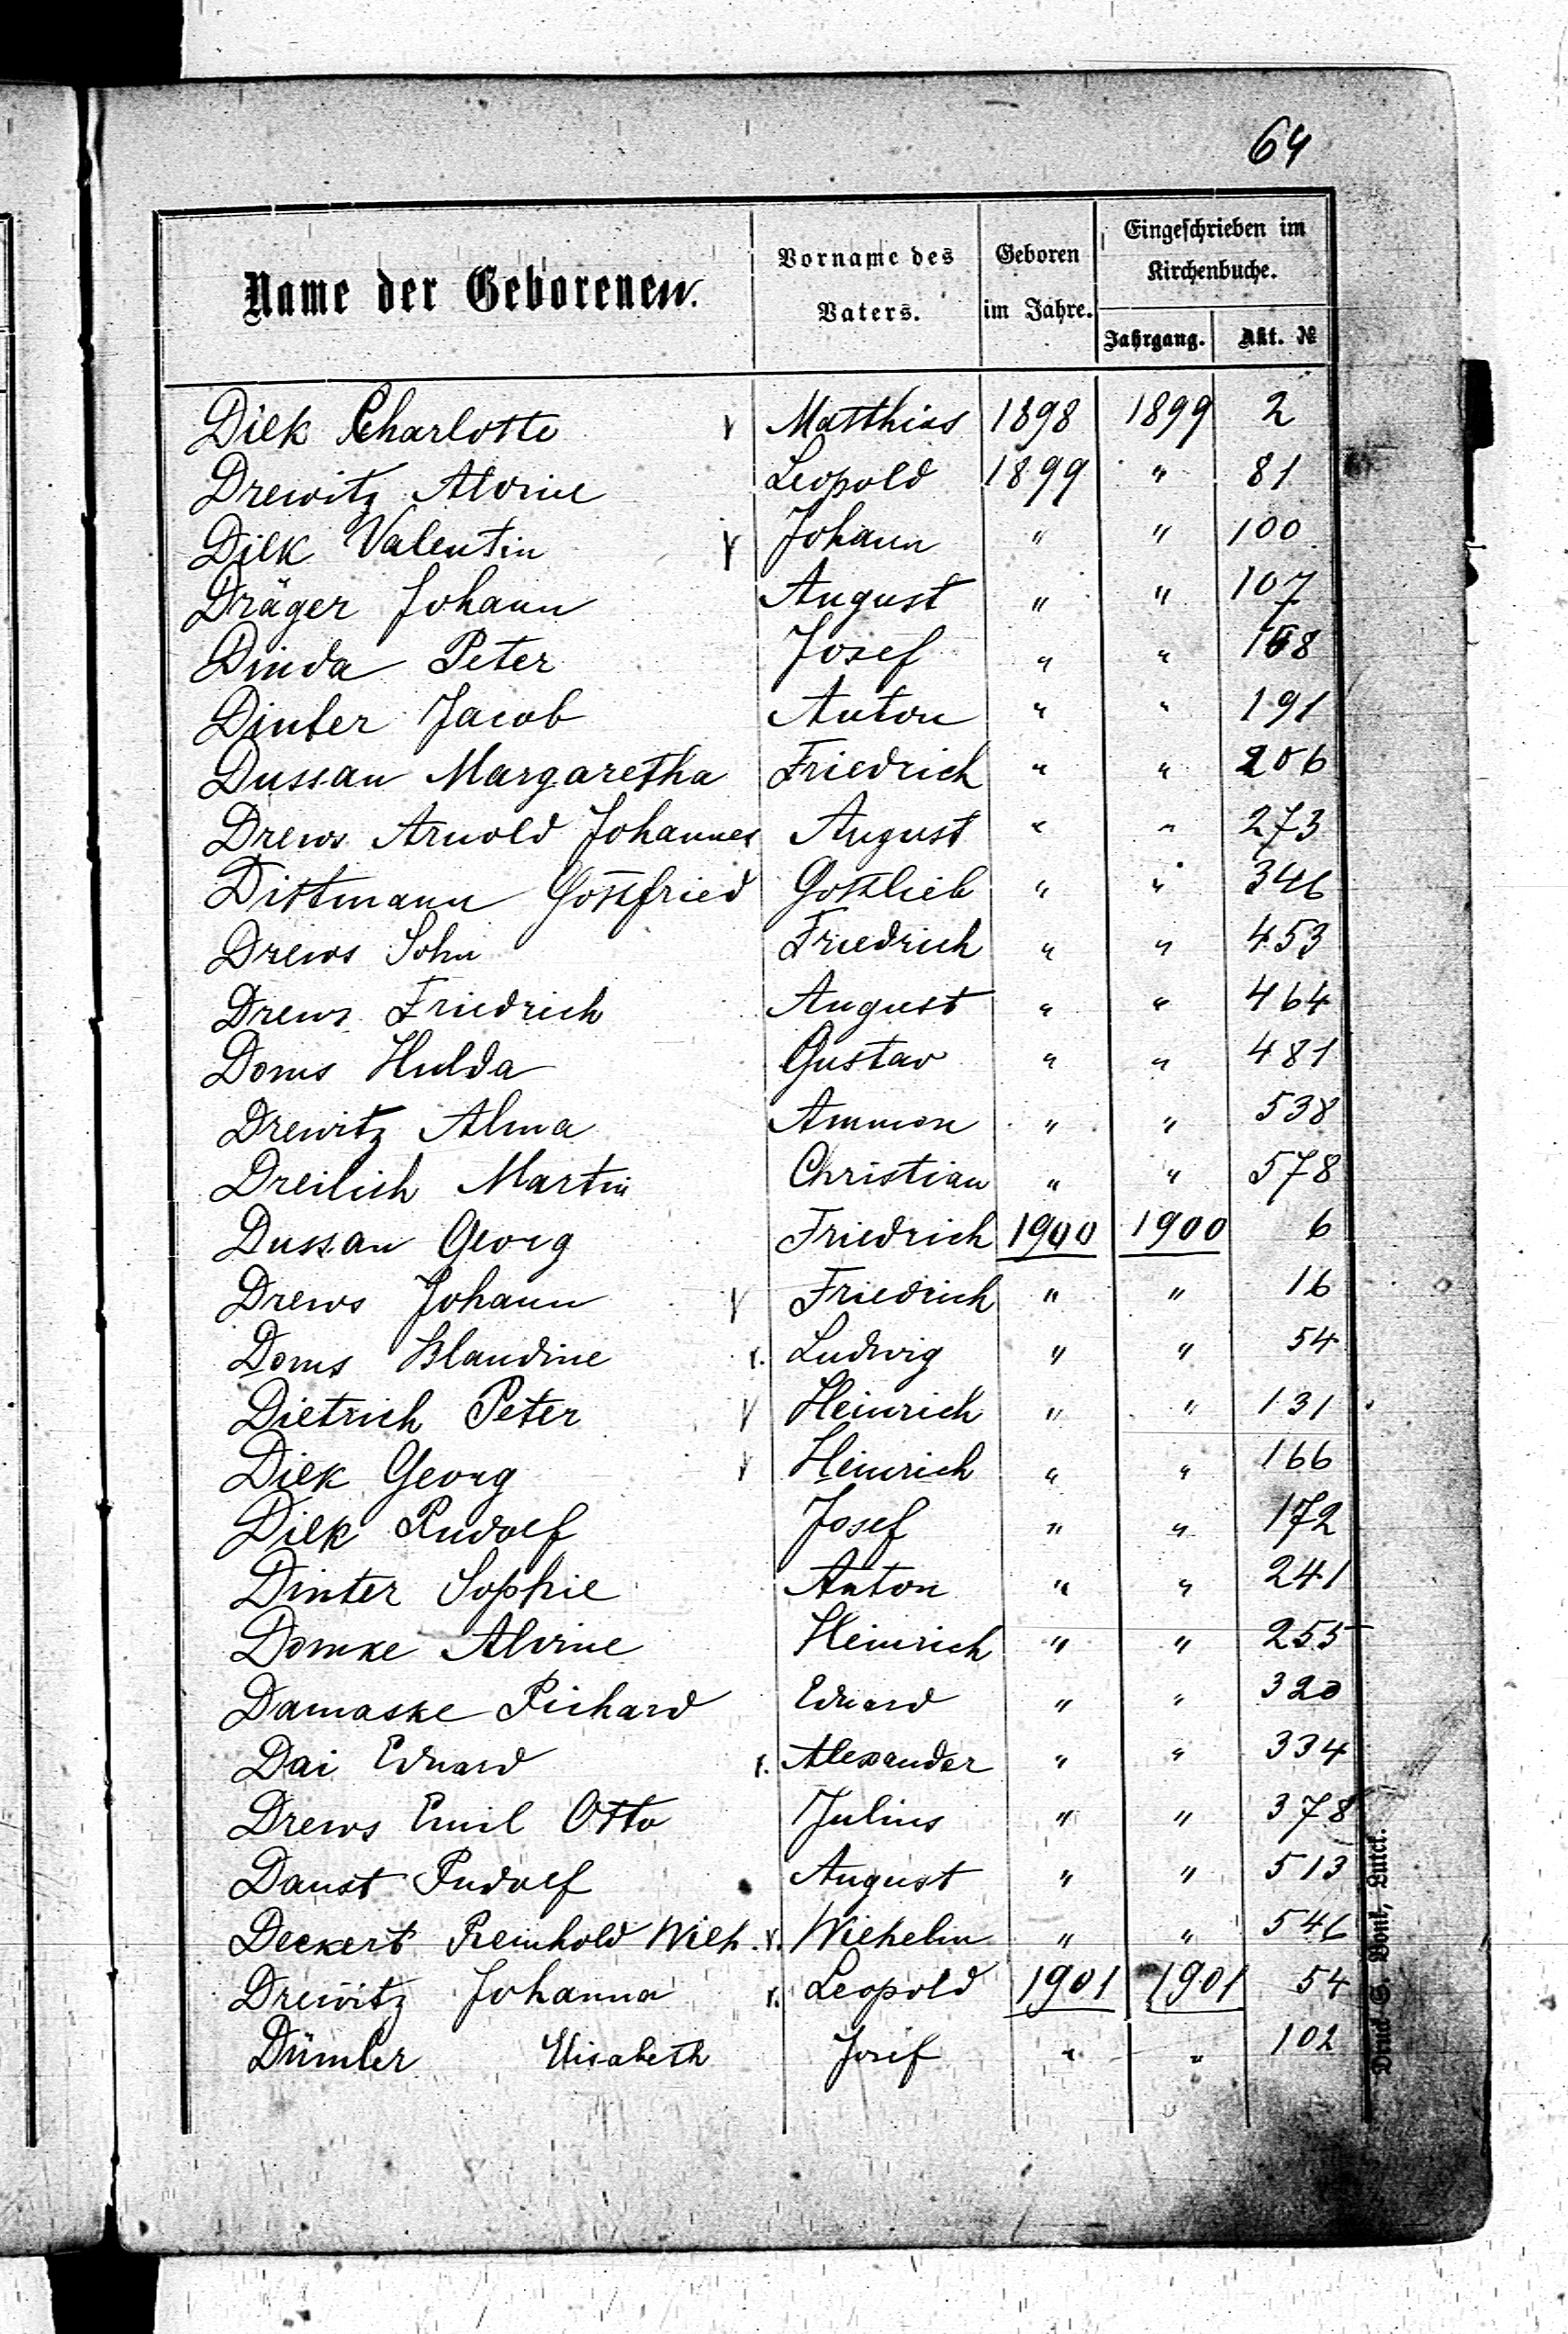 64
Name der Geborenen. Vorname des Vaters. Geboren im Jahre. Eingeschrieben im Kirchenbuche. Jahrgang. Akt. №
Dilk Charlotte Matthias 1898 1899 2
Drewitz Alvine Leopold 1899 " 81
Dilk Valentin Johann " " 100
Dräger Johann August " " 107
Dinda Peter Josef " " 168
Dinter Jacob Anton " " 191
Dussan Margaretha Friedrich " " 206
Drews Arnold Johannes August " " 273
Dittmann Gottfried Gottlieb " " 346
Drews Sohn Friedrich " " 453
Drews Friedrich August " " 464
Doms Hulda Gustav " " 481
Drewitz Alma Ammon " " 538
Dreilich Martin Christian " " 578
Dussan Georg Friedrich 1900 1900 6
Drews Johann Friedrich " " 16
Doms Blandine Ludwig " " 54
Dietrich Peter Heinrich " " 131
Dilk Georg Heinrich " " 166
Dilk Rudolf Josef " " 172
Dinter Sophie Anton " " 241
Domke Alvine Heinrich " " 255
Damaske Richard Eduard " " 320
Dai Eduard Alexander " " 334
Drews Emil Otto Julius " " 378
Daust Rudolf August " " 513
Deckert Reinhold Wilh. Wilhelm " " 546
Drewitz Johanna Leopold 1901 1901 54
Dümler Elisabeth Josef " " 102
Druck S. Bonk, Luck.